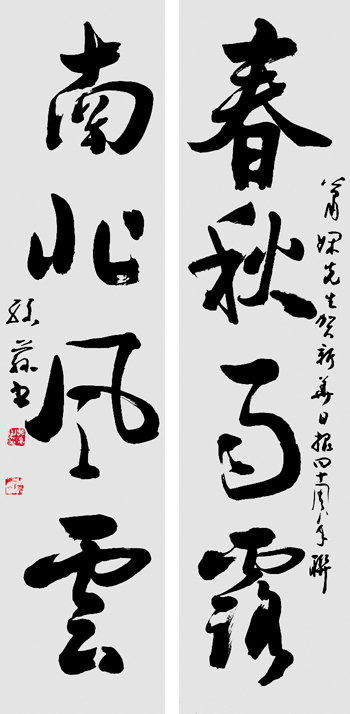 春秋雨露
先生贺新华日报四十周年联
南北风云
书